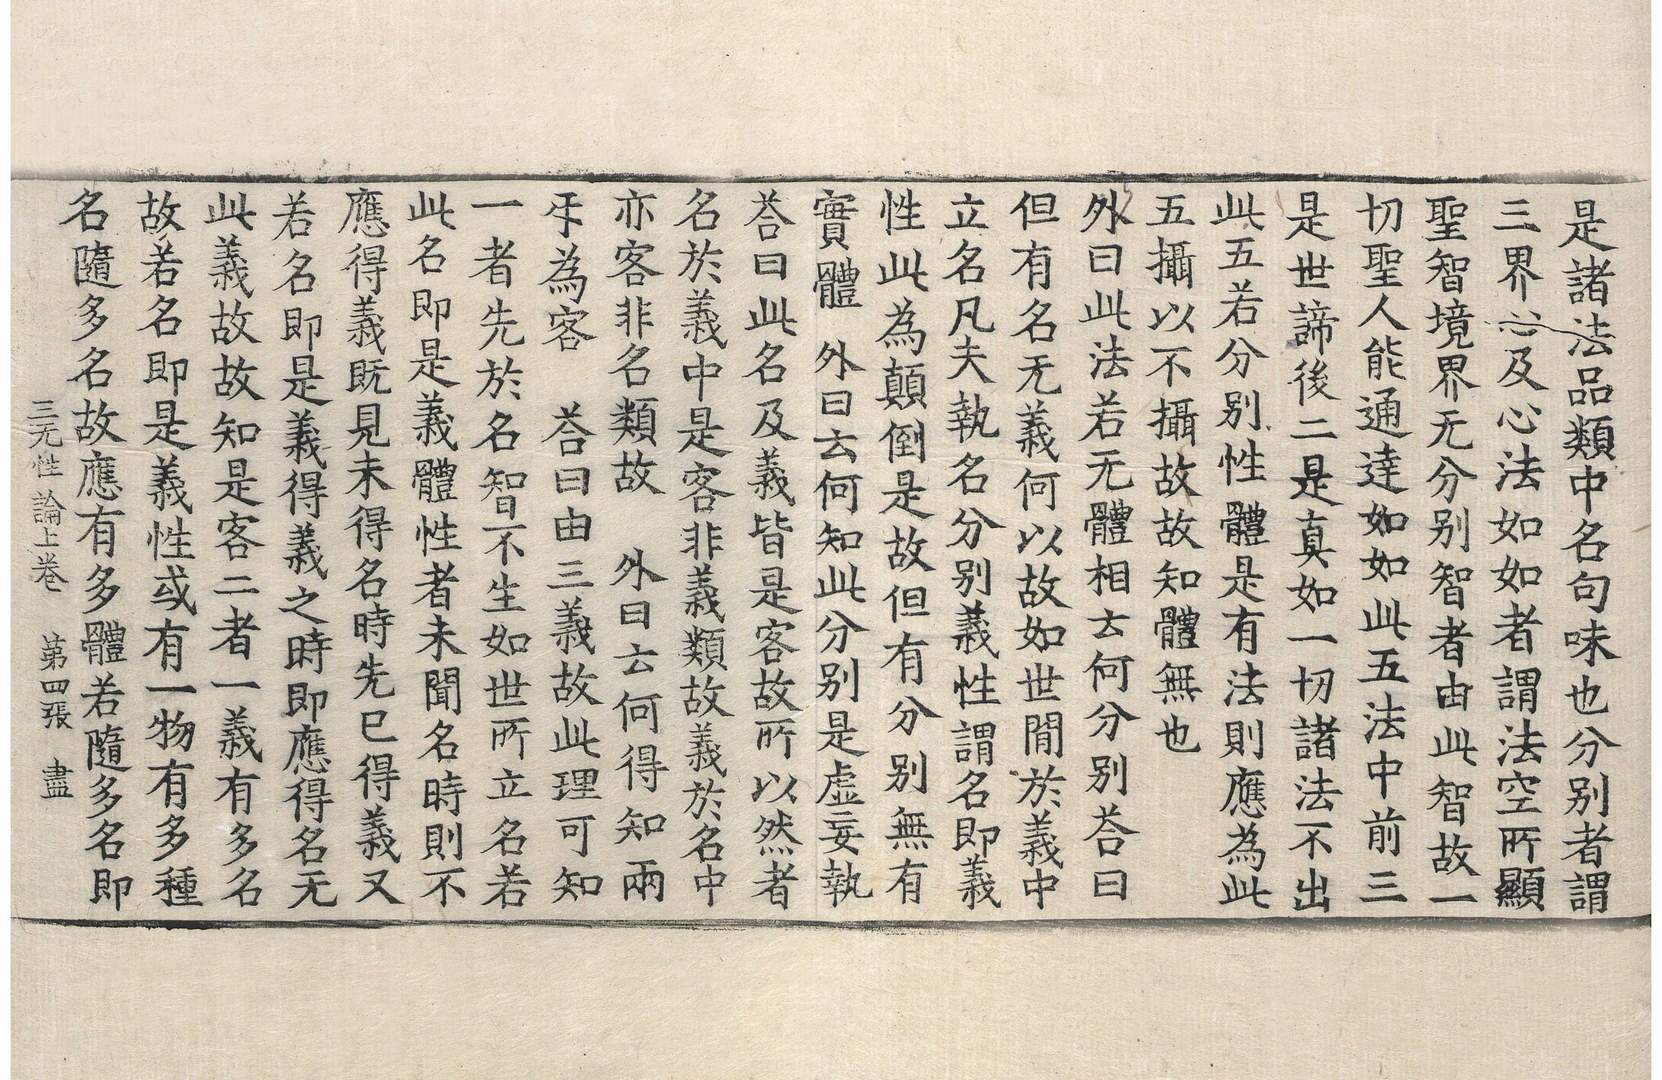 是諸法品類中名句味也分別者謂
三界心及心法如如者謂法空所顯
聖智境界无分別智者由此智故一
切聖人能通達如如此五法中前三
是世諦後二是真如一切諸法不出
此五若分別性體是有法則應為此
五攝以不攝故故知體無也
外曰此法若无體相云何分別荅曰
但有名无義何以故如世閒於義中
立名凡夫執名分別義性謂名即義
性此為顛倒是故但有分別無有
實體　外曰云何知此分別是虛妄執
荅曰此名及義皆是客故所以然者
名於義中是客非義類故義於名中
亦客非名類故　外曰云何得知兩
㸦為客　荅曰由三義故此理可知
一者先於名智不生如世所立名若
此名即是義體性者未聞名時則不
應得義既見未得名時先已得義又
若名即是義得義之時即應得名无
此義故故知是客二者一義有多名
故若名即是義性或有一物有多種
名隨多名故應有多體若隨多名即
三无性論上卷　第四張　盡